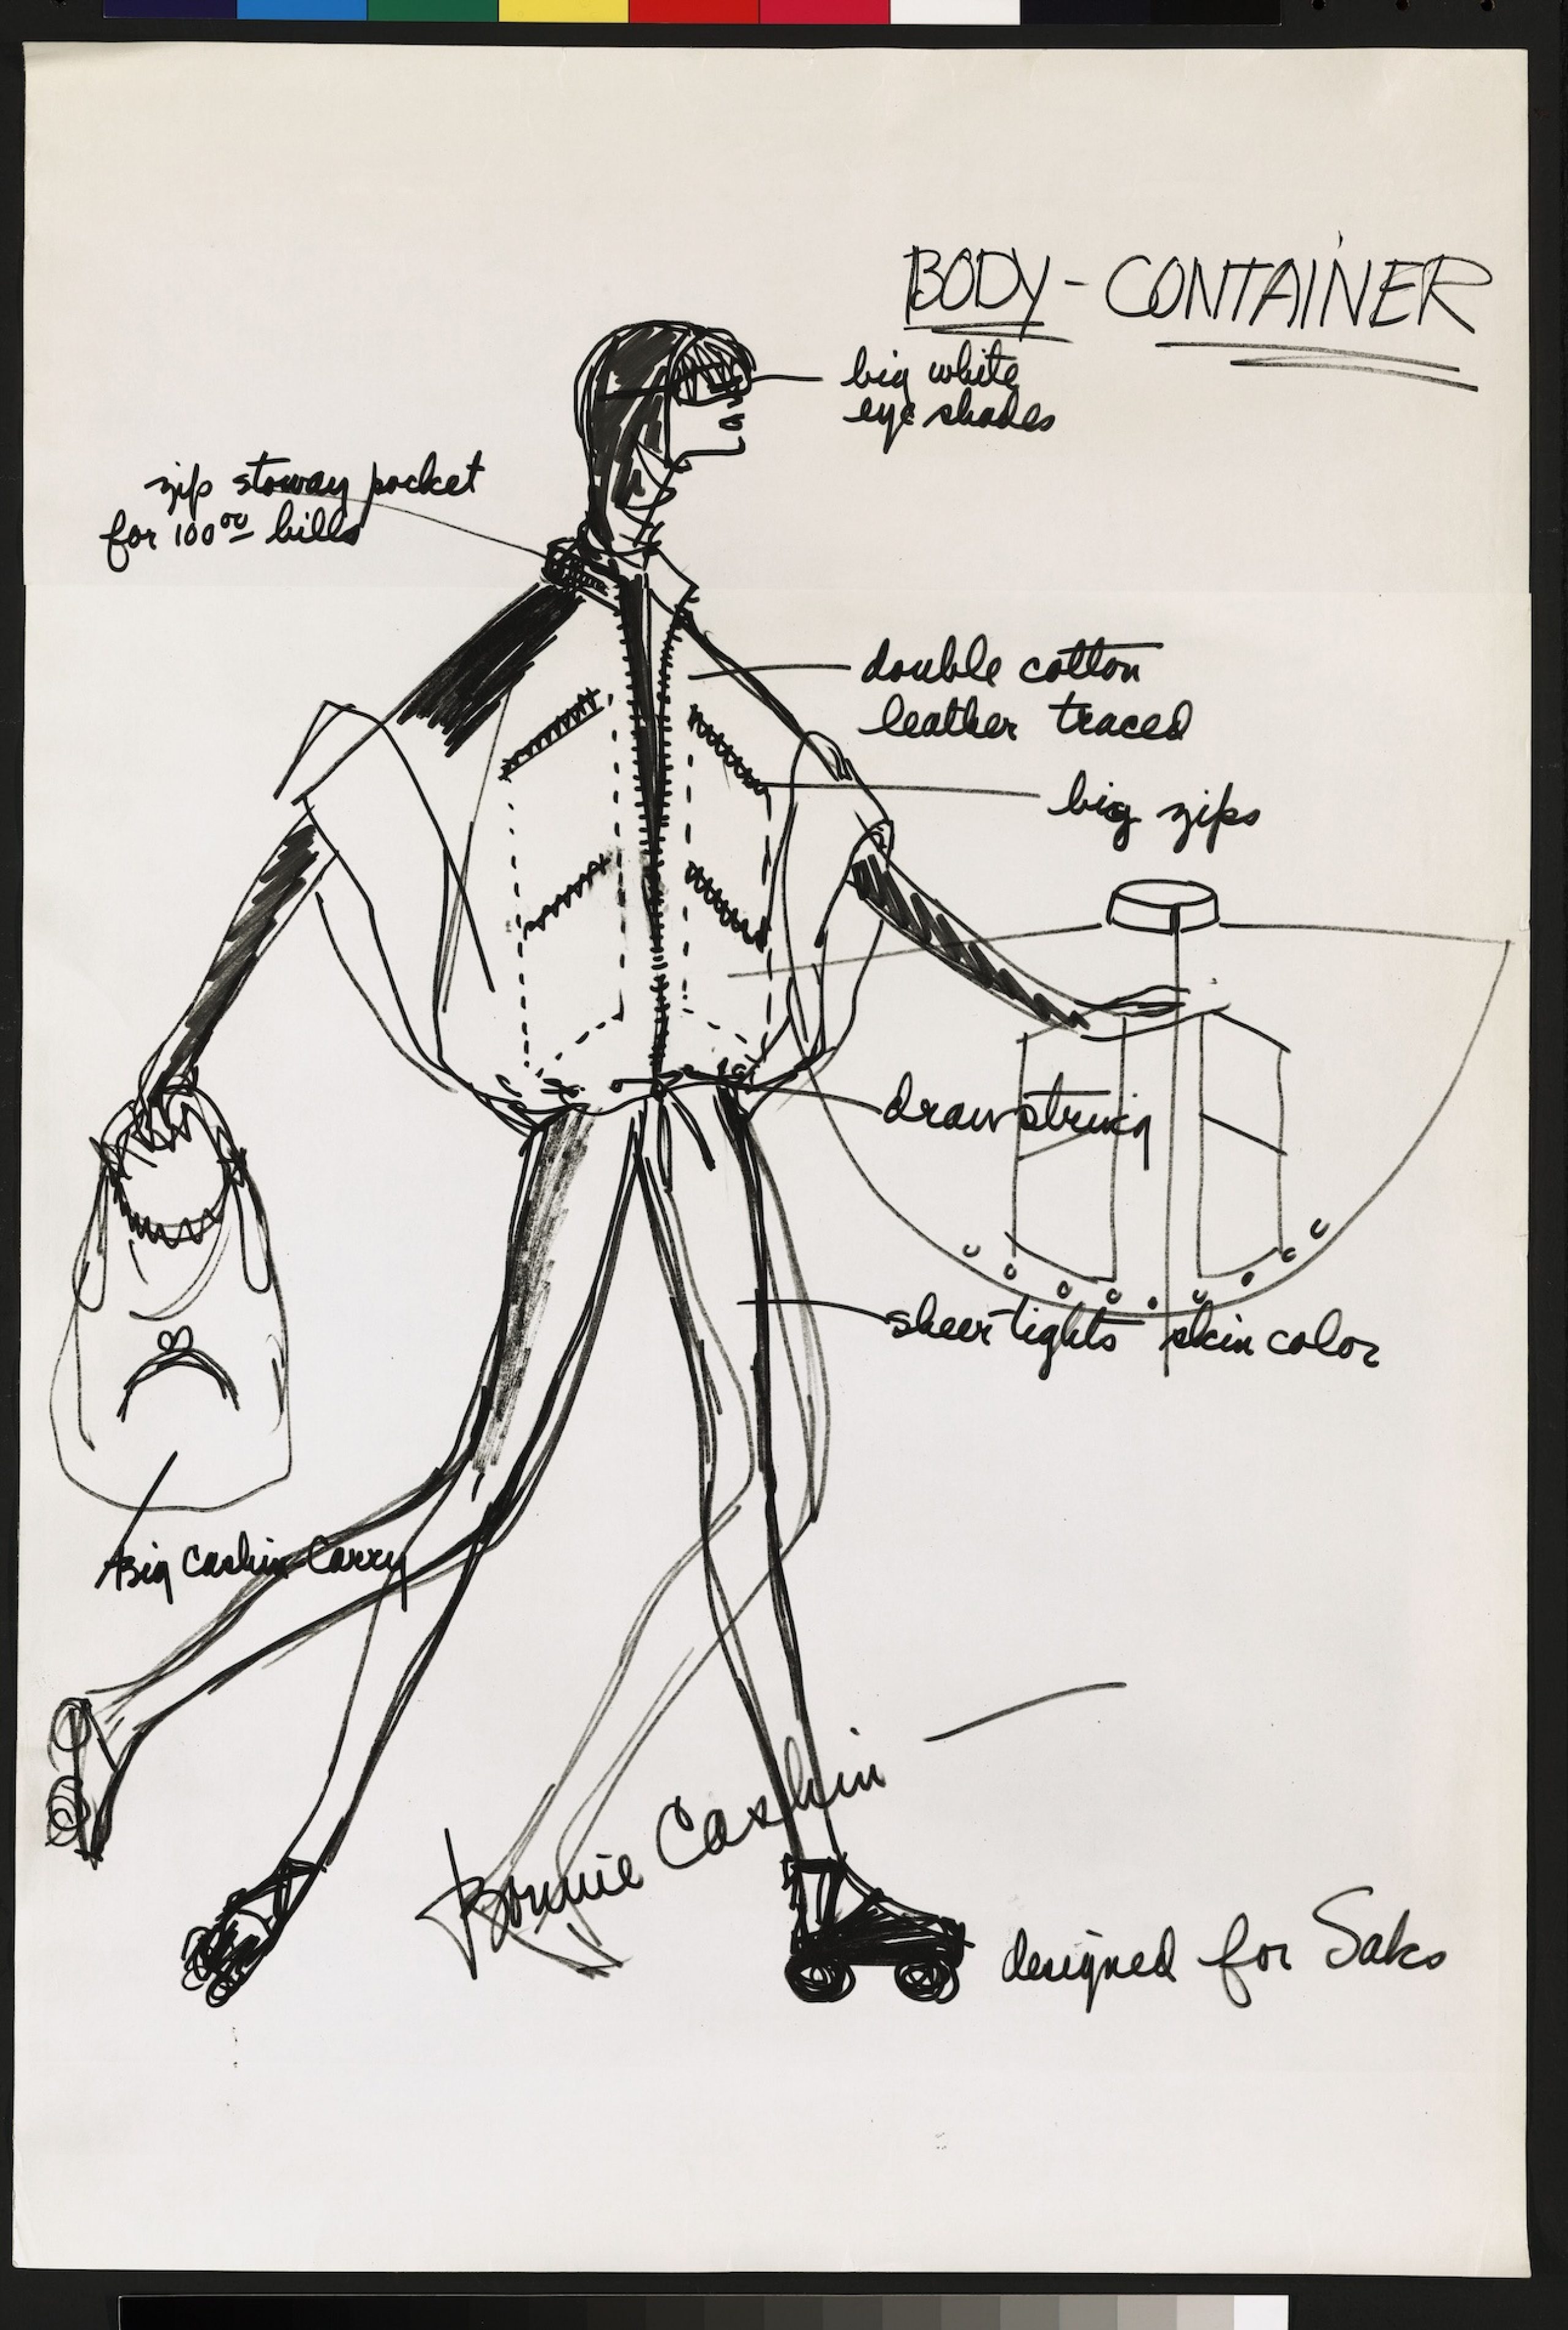 BODY - CONTAINER
big white
eye shades
zip stoway pocket
for 100⁰⁰ bills
double cotton
leather traced
big zips
drawstring
sheer tights skin color
Big Cashin Carry
Bonnie Cashin
designed for Saks